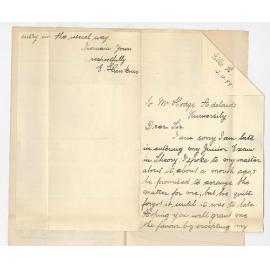 to Mr Hodge Adelaide
University
Dear Sir
I am sorry I am late
in entering my Junior Exam
in Theory. I spoke to my master
about it, about a month ago &
he promised to arrange the
matter for me, but he quite
forgot it until it was to late
hoping you will grant me
the favour by accepting my
entry in the usual way
I remain yours
respectfully
E